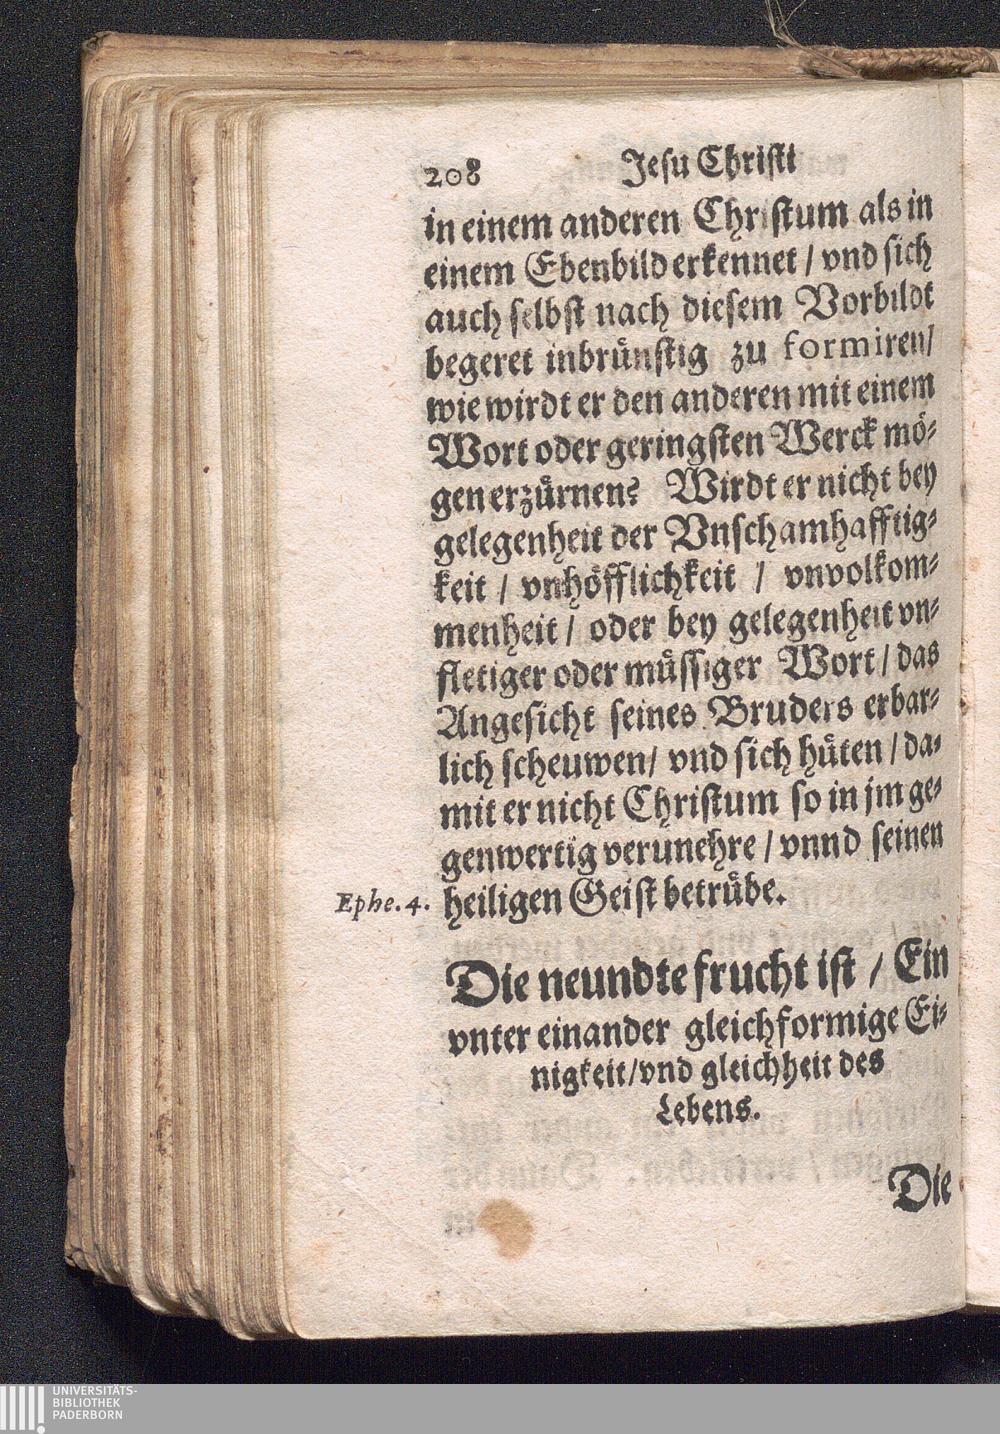 208 Jesu Christi
in einem anderen Christum als in
einem Ebenbild erkennet / vnd sich
auch selbst nach diesem Vorbildt
begeret inbrünstig zu formiren/
wie wirdt er den anderen mit einem
Wort oder geringsten Werck mö-
gen erzürnen? Wirdt er nicht bey
gelegenheit der Vnschamhafftig-
keit / vnhöfflichkeit / vnvolkom-
menheit / oder bey gelegenheit vn-
fletiger oder müssiger Wort / das
Angesicht seines Bruders erbar-
lich scheuwen/ vnd sich hüten / da-
mit er nicht Christum so in jm ge-
genwertig verunehre / vnnd seinen
Ephe. 4. heiligen Geist betrübe.
Die neundte frucht ist / Ein
vnter einander gleichformige Ei-
nigkeit/vnd gleichheit des
Lebens.
Die
UNIVERSITÄTS-
BIBLIOTHEK
PADERBORN